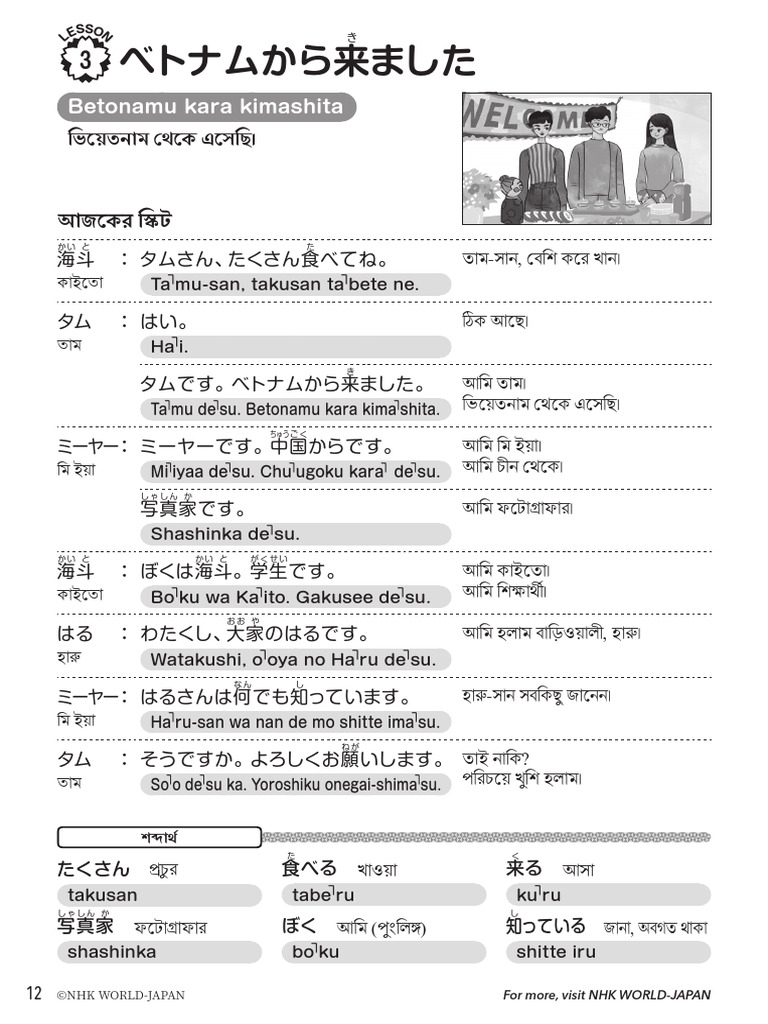 LESSON
3
ベトナムから来ました
き
Betonamu kara kimashita
ভিয়েতনাম থেকে এসেছি।
WELCOME
আজকের স্কিট
かいと
海斗 : タムさん、たくさん食べてね。 তাম-সান, বেশি করে খান।
た
কাইতো Ta˥mu-san, takusan ta˥bete ne.
タム : はい。 ঠিক আছে।
তাম Ha˥i.
き
タムです。ベトナムから来ました。 আমি তাম।
Ta˥mu de˥su. Betonamu kara kima˥shita. ভিয়েতনাম থেকে এসেছি।
ちゅうごく
ミーヤー: ミーヤーです。中国からです。 আমি মি ইয়া।
মি ইয়া Mi˥iyaa de˥su. Chu˥ugoku kara˥ de˥su. আমি চীন থেকে।
しゃしんか
写真家です。 আমি ফটোগ্রাফার।
Shashinka de˥su.
かいと かいと がくせい
海斗 : ぼくは海斗。学生です。 আমি কাইতো।
কাইতো Bo˥ku wa Ka˥ito. Gakusee de˥su. আমি শিক্ষার্থী।
おおや
はる : わたくし、大家のはるです。 আমি হলাম বাড়িওয়ালী, হারু।
হারু Watakushi, o˥oya no Ha˥ru de˥su.
なん し
ミーヤー: はるさんは何でも知っています。 হারু-সান সবকিছু জানেন।
মি ইয়া Ha˥ru-san wa nan de mo shitte ima˥su.
ねが
タム : そうですか。よろしくお願いします。 তাই নাকি?
তাম So˥o de˥su ka. Yoroshiku onegai-shima˥su. পরিচয়ে খুশি হলাম।
শব্দার্থ
た く
たくさん প্রচুর 食べる খাওয়া 来る আসা
takusan tabe˥ru ku˥ru
しゃしんか し
写真家 ফটোগ্রাফার ぼく আমি (পুংলিঙ্গ) 知っている জানা, অবগত থাকা
shashinka bo˥ku shitte iru
12 ©NHK WORLD-JAPAN For more, visit NHK WORLD-JAPAN